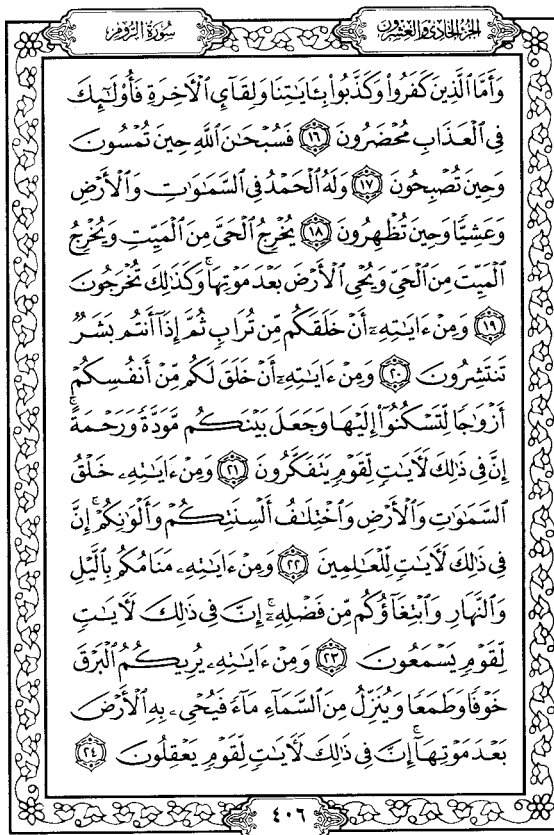 الجزء الحادي والعشرون
سورة الروم
وَأَمَّا الَّذِينَ كَفَرُوا۟ وَكَذَّبُوا۟ بِـَٔايَـٰتِنَا وَلِقَآئِ الْـَٔاخِرَةِ فَأُو۟لَـٰٓئِكَ
فِى الْعَذَابِ مُحْضَرُونَ ١٦ فَسُبْحَـٰنَ اللَّهِ حِينَ تُمْسُونَ
وَحِينَ تُصْبِحُونَ ١٧ وَلَهُ الْحَمْدُ فِى السَّمَـٰوَٰتِ وَالْأَرْضِ
وَعَشِيًّا وَحِينَ تُظْهِرُونَ ١٨ يُخْرِجُ الْحَىَّ مِنَ الْمَيِّتِ وَيُخْرِجُ
الْمَيِّتَ مِنَ الْحَىِّ وَيُحْىِ الْأَرْضَ بَعْدَ مَوْتِهَا ۚ وَكَذَٰلِكَ تُخْرَجُونَ
١٩ وَمِنْ ءَايَـٰتِهِۦٓ أَنْ خَلَقَكُم مِّن تُرَابٍ ثُمَّ إِذَآ أَنتُم بَشَرٌ
تَنتَشِرُونَ ٢٠ وَمِنْ ءَايَـٰتِهِۦٓ أَنْ خَلَقَ لَكُم مِّنْ أَنفُسِكُمْ
أَزْوَٰجًا لِّتَسْكُنُوٓا۟ إِلَيْهَا وَجَعَلَ بَيْنَكُم مَّوَدَّةً وَرَحْمَةً ۚ
إِنَّ فِى ذَٰلِكَ لَـَٔايَـٰتٍ لِّقَوْمٍ يَتَفَكَّرُونَ ٢١ وَمِنْ ءَايَـٰتِهِۦ خَلْقُ
السَّمَـٰوَٰتِ وَالْأَرْضِ وَاخْتِلَـٰفُ أَلْسِنَتِكُمْ وَأَلْوَٰنِكُمْ ۚ إِنَّ
فِى ذَٰلِكَ لَـَٔايَـٰتٍ لِّلْعَـٰلِمِينَ ٢٢ وَمِنْ ءَايَـٰتِهِۦ مَنَامُكُم بِالَّيْلِ
وَالنَّهَارِ وَابْتِغَآؤُكُم مِّن فَضْلِهِۦٓ ۚ إِنَّ فِى ذَٰلِكَ لَـَٔايَـٰتٍ
لِّقَوْمٍ يَسْمَعُونَ ٢٣ وَمِنْ ءَايَـٰتِهِۦ يُرِيكُمُ الْبَرْقَ
خَوْفًا وَطَمَعًا وَيُنَزِّلُ مِنَ السَّمَآءِ مَآءً فَيُحْىِۦ بِهِ الْأَرْضَ
بَعْدَ مَوْتِهَآ ۚ إِنَّ فِى ذَٰلِكَ لَـَٔايَـٰتٍ لِّقَوْمٍ يَعْقِلُونَ ٢٤
٤٠٦